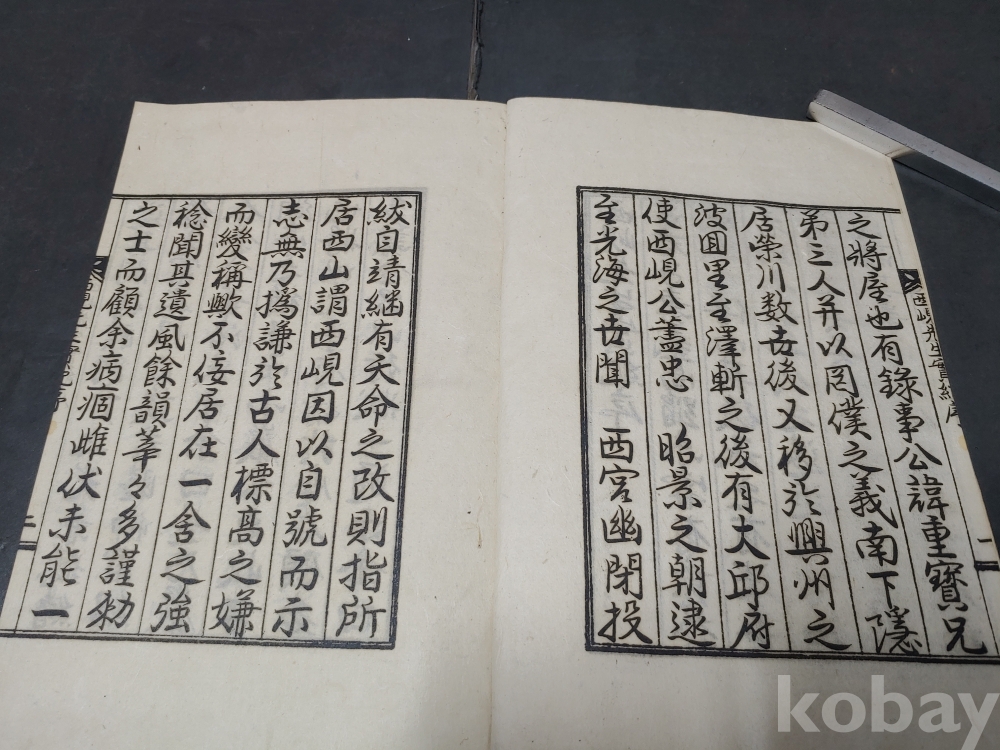 之將屋也有錄事公諱重寶兄
弟三人并以罔僕之義南下隱
居榮川数世後又移於興州之
波回里至澤斬之後有大邱府
使西峴公藎忠 昭景之朝逮
至光海之世聞 西宮幽閉投
紱自靖繼有天命之改則指所
居西山謂西峴因以自號而示
志無乃撝謙於古人標高之嫌
而變稱歟不佞居在一舍之強
稔聞其遺風餘韻荦々多謹勑
之士而顧余病痼雌伏未能一
一
二
kobay